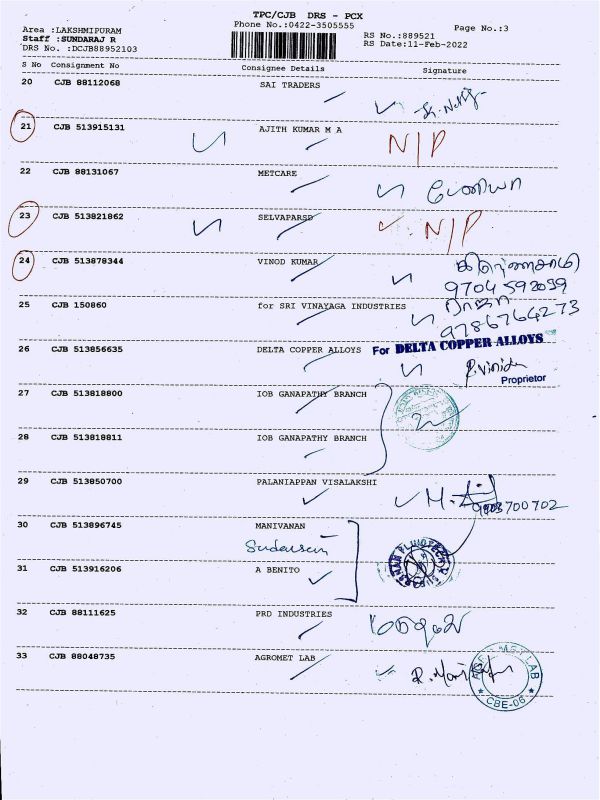 TPC/CJB DRS - PCX
Phone No.:0422-3505555
Page No.:3
Area :LAKSHMIPURAM
Staff :SUNDARAJ R
DRS No. :DCJB88952103
RS No.:889521
RS Date:11-Feb-2022
S No Consignment No Consignee Details Signature
20 CJB 88112068 SAI TRADERS
21 CJB 513915131 AJITH KUMAR M A N/P
22 CJB 88131067 METCARE
23 CJB 513821862 SELVAPARSD N/P
24 CJB 513878344 VINOD KUMAR
9704592099
25 CJB 150860 for SRI VINAYAGA INDUSTRIES
ராஜா
9786764273
26 CJB 513856635 DELTA COPPER ALLOYS For DELTA COPPER ALLOYS
Proprietor
27 CJB 513818800 IOB GANAPATHY BRANCH
28 CJB 513818811 IOB GANAPATHY BRANCH
29 CJB 513850700 PALANIAPPAN VISALAKSHI
30 CJB 513896745 MANIVANAN
31 CJB 513916206 A BENITO
32 CJB 88111625 PRD INDUSTRIES
33 CJB 88048735 AGROMET LAB
LAB
CBE-06